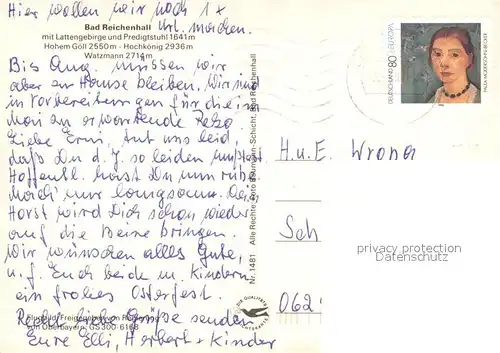 Hier wollen wir noch 1x
Url. machen.
Bad Reichenhall
mit Lattengebirge und Predigtstuhl 1641 m
Hohem Göll 2550 m - Hochkönig 2936 m
Watzmann 2714 m
Bis Aug. müssen wir
aber zu Hause bleiben. Wir sind
in Vorbereitungen für die im
Mai zu erwartende
Liebe Erni, tut uns leid,
daß Du d. J. so leiden mußtest
Hoffentl. hast Du nun Ruhe
mach nur langsam. Dein
Horst wird Dich schon wieder
auf die Beine bringen.
Wir wünschen alles Gute,
u. f. Euch beide m. Kindern
ein frohes Osterfest.
Flugbild: Freigegeben von Reg. v.
von Oberbayern, GS 300/6168
Recht liebe Grüße senden
Eure Elli, Herbert + Kinder
Nr. 1481 Alle Rechte Foto Baumann-Schicht, Bad Reichenhall
DIE QUALITÄTS
DEUTSCHLAND 80 EUROPA
PAULA MODERSOHN-BECKER
H. u. E. Wrona
Sch
privacy protection
Datenschutz
062